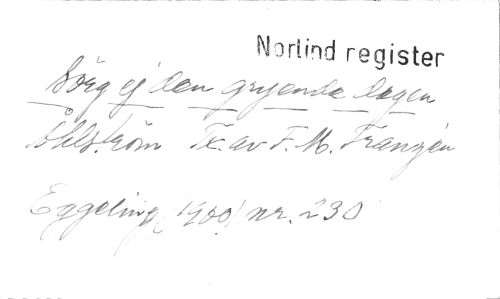 Norlind register
Sörg ej den gryende dagen
Åhlström Tx. av F. M. Franzén
Eggeling (1900) nr. 230